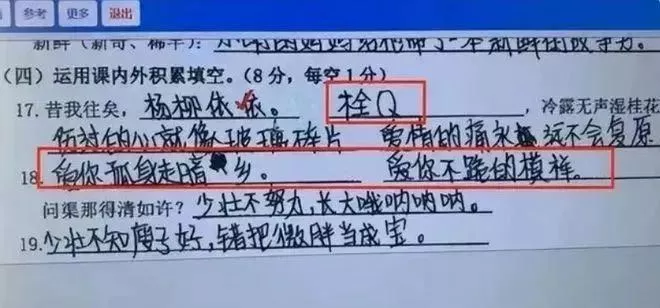 参考 更多 退出
(四)运用课内外积累填空。(8分,每空1分)
17. 昔我往矣,杨柳依依。 栓Q ,冷露无声湿桂花
伤过的心就像玻璃碎片 爱情的痛永远不会复原
18. 爱你孤身走暗乡。 爱你不跪的模样。
问渠那得清如许?少壮不努力,长大哦呐呐呐。
19. 少壮不知瘦子好,错把微胖当成宝。